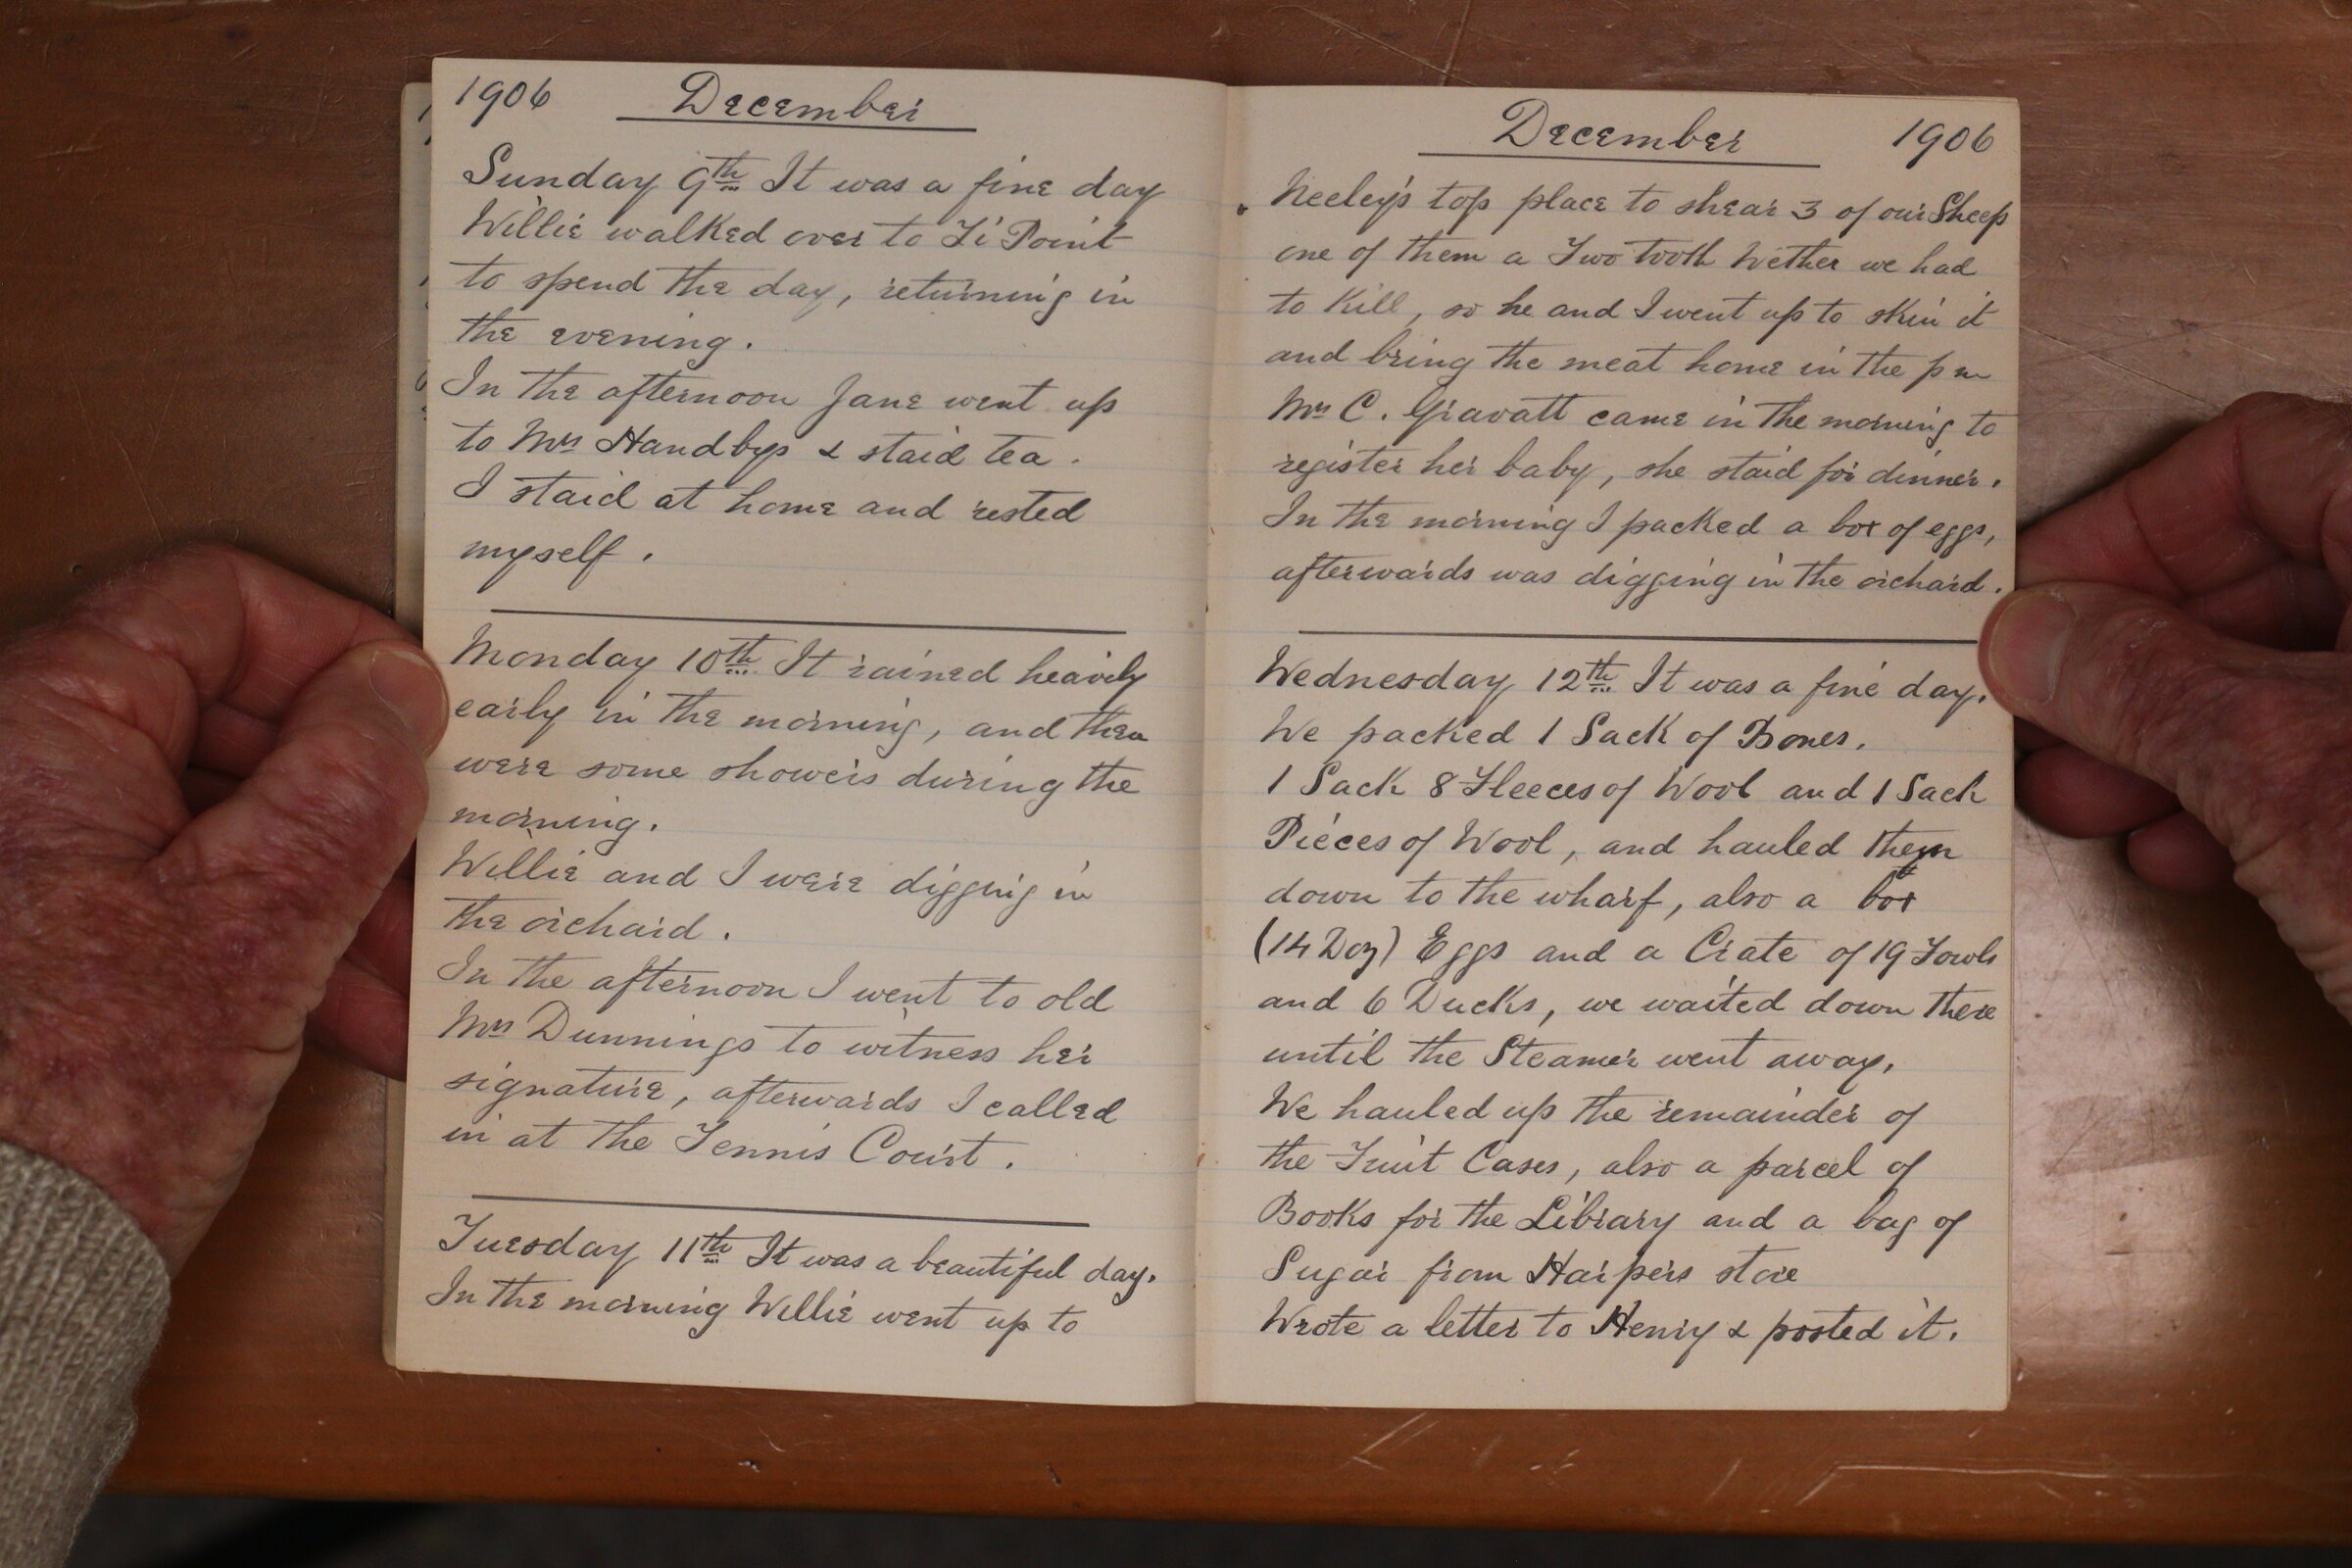 1906 December
Sunday 9th It was a fine day
Willie walked over to Ti Point
to spend the day, returning in
the evening.
In the afternoon Jane went up
to Mrs Handbys & staid tea.
I staid at home and rested
myself.
Monday 10th It rained heavily
early in the morning, and then
were some showers during the
morning.
Willie and I were digging in
the orchard.
In the afternoon I went to old
Mrs Dunnings to witness her
signature, afterwards I called
in at the Tennis Court.
Tuesday 11th It was a beautiful day.
In the morning Willie went up to
December 1906
Neeley's top place to shear 3 of our Sheep
one of them a Two tooth Wether we had
to Kill, so he and I went up to skin it
and bring the meat home in the pm
Mrs C. Gravatt came in the morning to
register her baby, she staid for dinner.
In the morning I packed a box of eggs,
afterwards was digging in the orchard.
Wednesday 12th It was a fine day.
We packed 1 Sack of Bones.
1 Sack 8 Fleeces of Wool and 1 Sack
Pieces of Wool, and hauled them
down to the wharf, also a box
(14 Doz) Eggs and a Crate of 19 Fowls
and 6 Ducks, we waited down there
until the Steamer went away.
We hauled up the remainder of
the Fruit Cases, also a parcel of
Books for the Library and a bag of
Sugar from Harpers store
Wrote a letter to Henry & posted it.